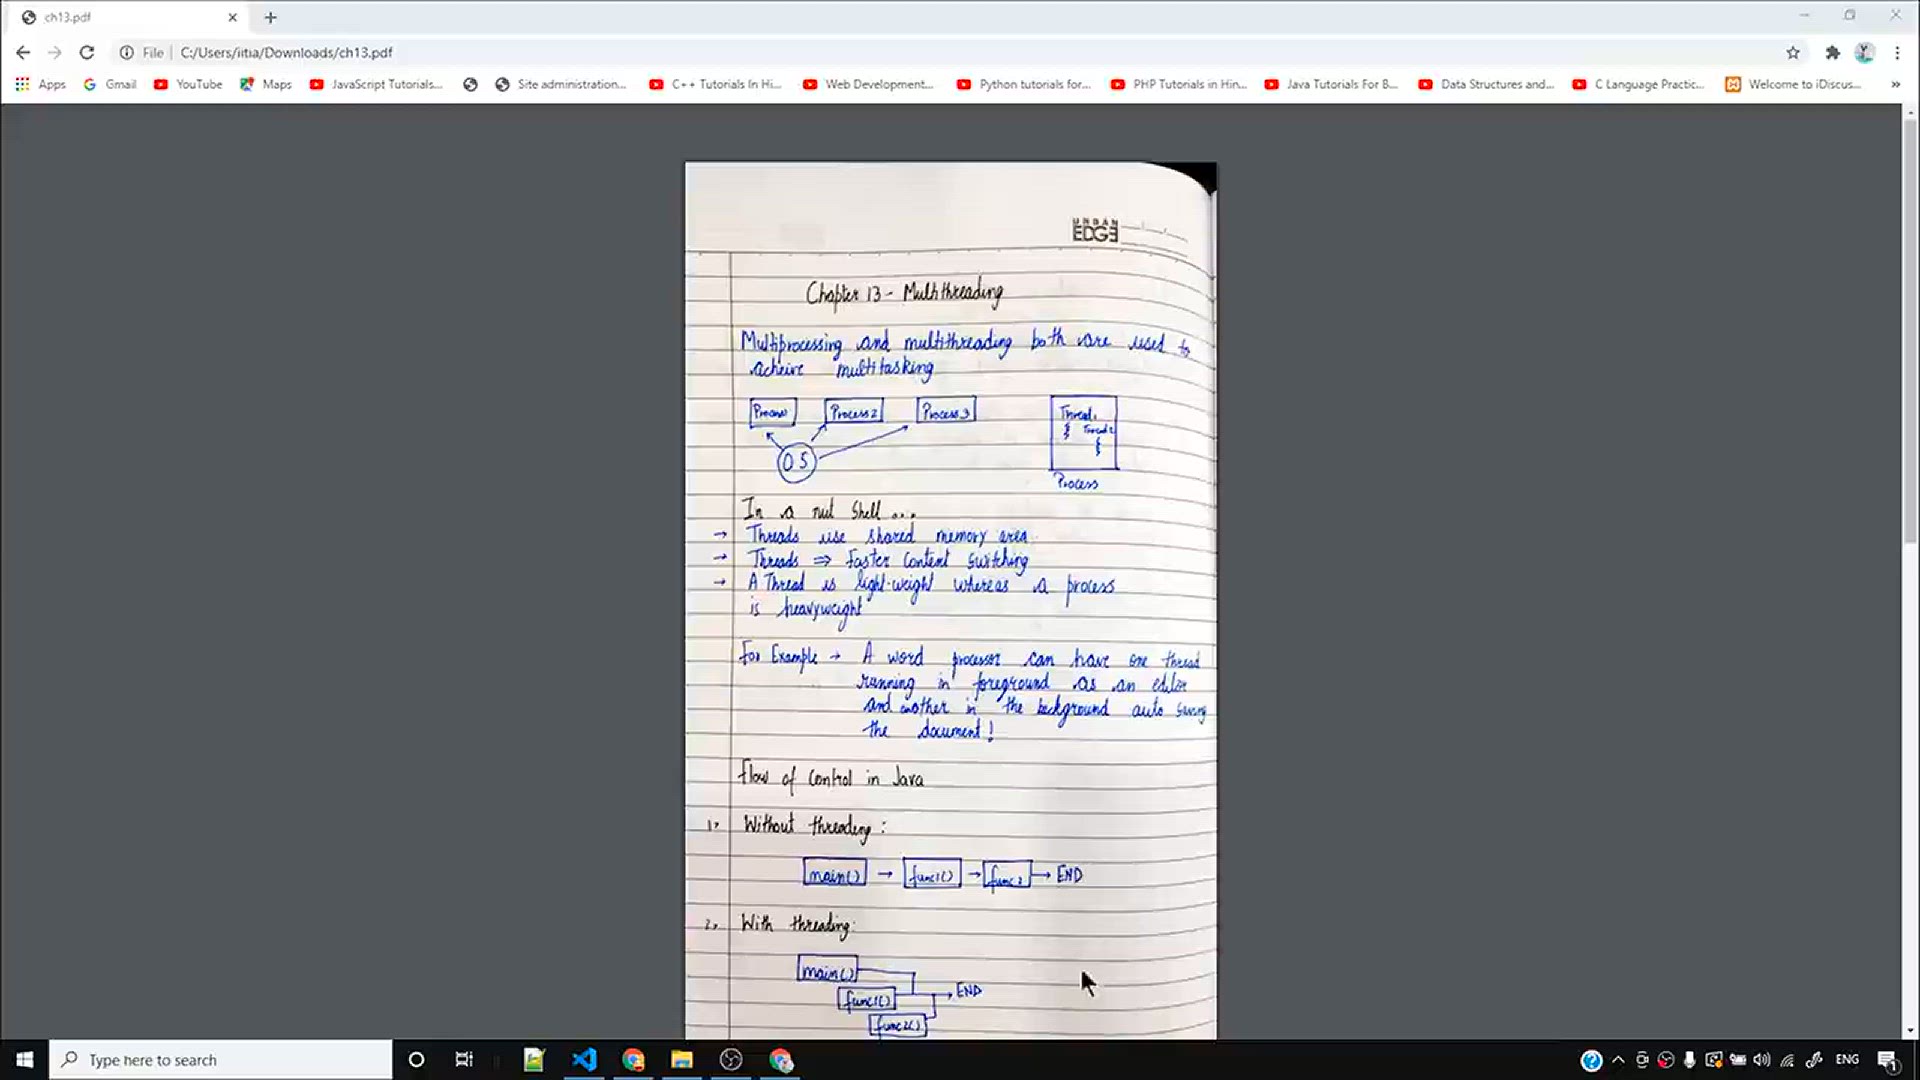 ch13.pdf
File C:/Users/iitia/Downloads/ch13.pdf
Apps Gmail YouTube Maps JavaScript Tutorials... Site administration... C++ Tutorials In Hi... Web Development... Python tutorials for... PHP Tutorials in Hin... Java Tutorials For B... Data Structures and... C Language Practic... Welcome to iDiscus... »
URBAN
EDGE
Chapter 13 - Multithreading
Multiprocessing and multithreading both are used to
acheive multitasking
Process Process2 Process3 Thread1
Thread2
OS
Process
In a nut shell...
→ Threads use shared memory area.
→ Threads ⇒ Faster Content switching
→ A Thread is light-weight whereas a process
is heavyweight
For Example → A word processor can have one thread
running in foreground as an editor
and another in the background auto saving
the document!
Flow of control in Java
1. Without threading:
main() → func1() → func2 → END
2. With threading:
main()
func1() → END
func2()
Type here to search
ENG
1